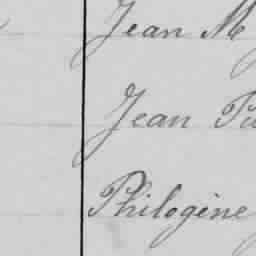 Jean M
Jean
Philogène